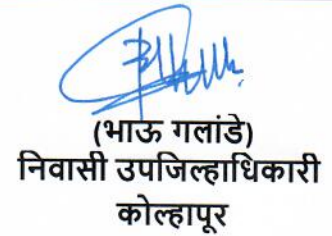 (भाऊ गलांडे)
निवासी उपजिल्हाधिकारी
कोल्हापूर